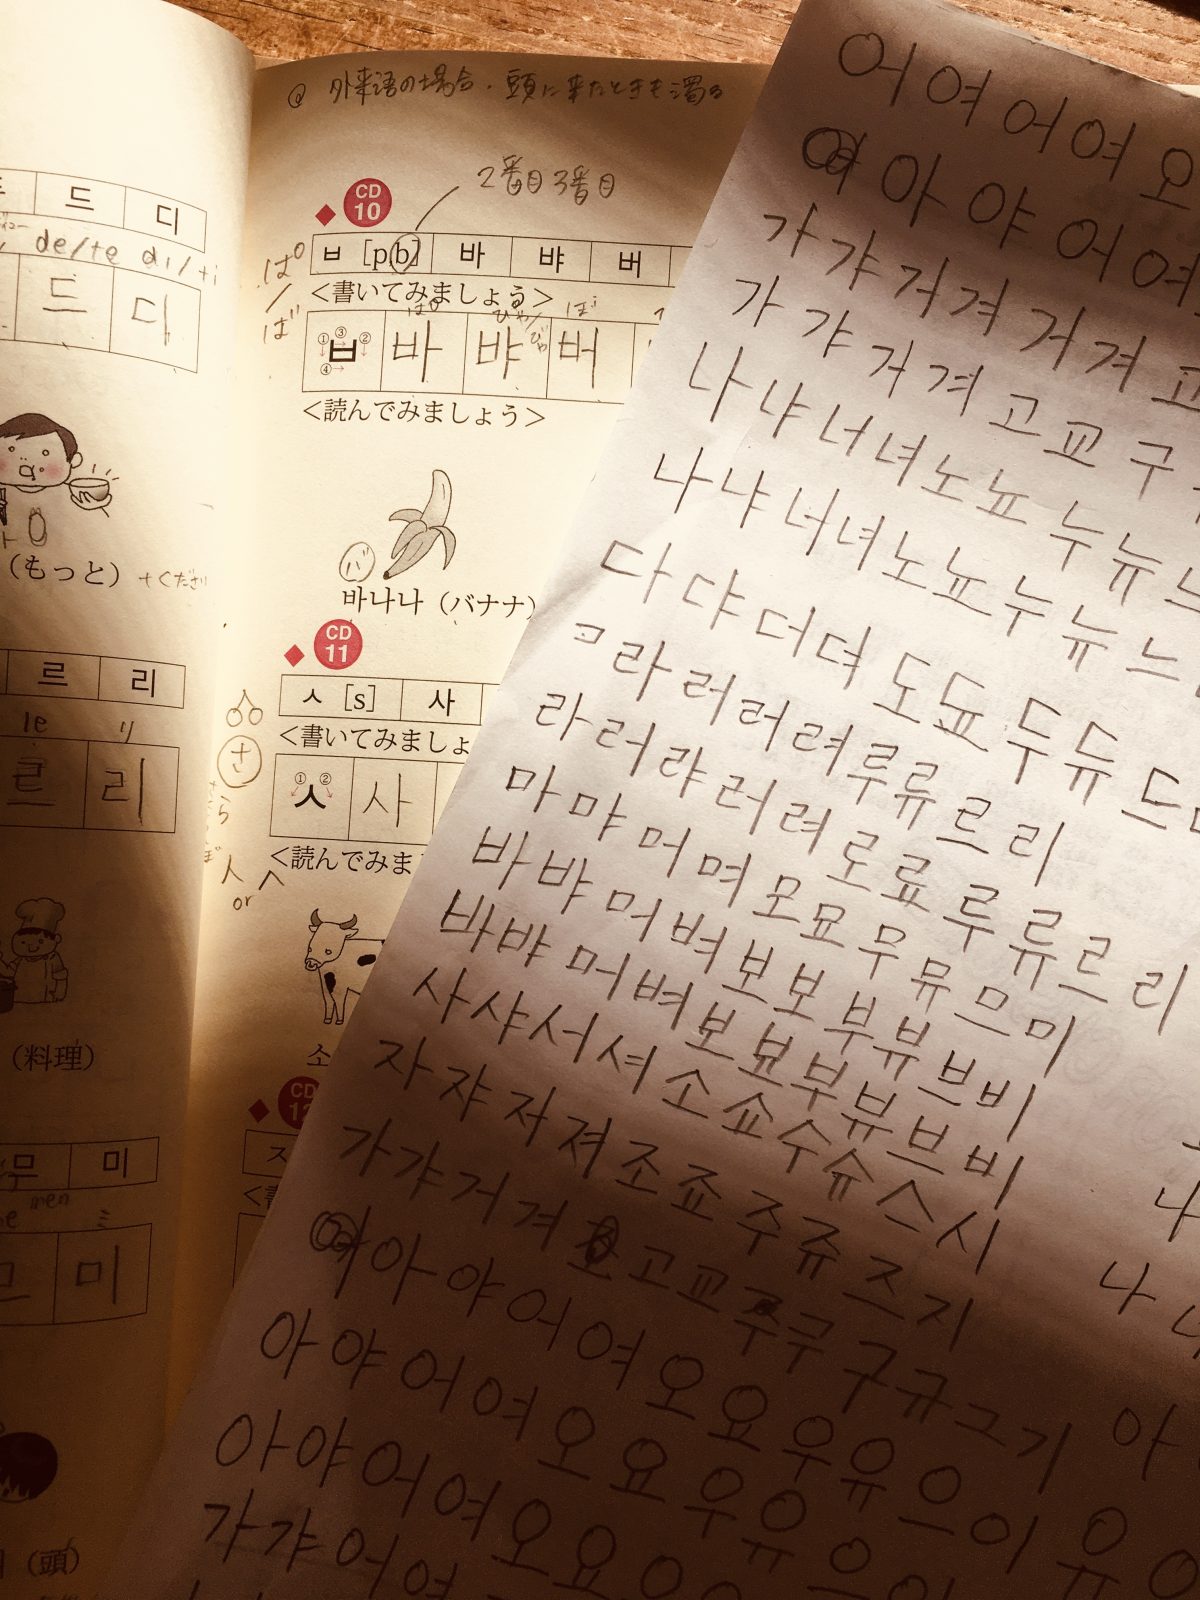 드 디
de/te di/ti
드 디
(もっと) +ください
르 리
le リ
르 리
(料理)
무 미
men
ミ
미
(頭)
外来語の場合・頭に来たときも濁る
2番目3番目
CD
10
ㅂ [p(b)] 바 뱌 버
<書いてみましょう>
ぱ/ば
① ③ ② ㅂ ④ 바 뱌 버
<読んでみましょう>
バ
바나나(バナナ)
CD
11
ㅅ [s] 사
<書いてみましょ
さ
① ② ㅅ 사
<読んでみま
人
or ヘ
소
CD
어 여 어 여 오
아 야 어 여
가 갸 거 겨 거 겨 교
가 갸 거 겨 고 교 구
나 냐 너 녀 노 뇨 누 뉴
나 냐 너 녀 노 뇨 누 뉴 느
다 댜 더 뎌 도 됴 두 듀 드
ㅁ 라 러 러 려 루 류 르 리
라 러 랴 러 려 로 료 루 류 르 리
마 먀 머 며 모 묘 무 뮤 므 미
바 뱌 머 벼 보 보 부 뷰 브 비
바 뱌 머 벼 보 뵤 부 뷰 브 비
사 샤 서 셔 소 쇼 수 슈 스 시
자 쟈 저 져 조 죠 주 쥬 즈 지
가 갸 거 겨 고 교 구 구 규 그 기
아 야 어 여 오 요 우 유 으 이 유
아 야 어 여 오 요 우 유 으
아 야 어 여 오 요
가 갸 어 여
나
나
아